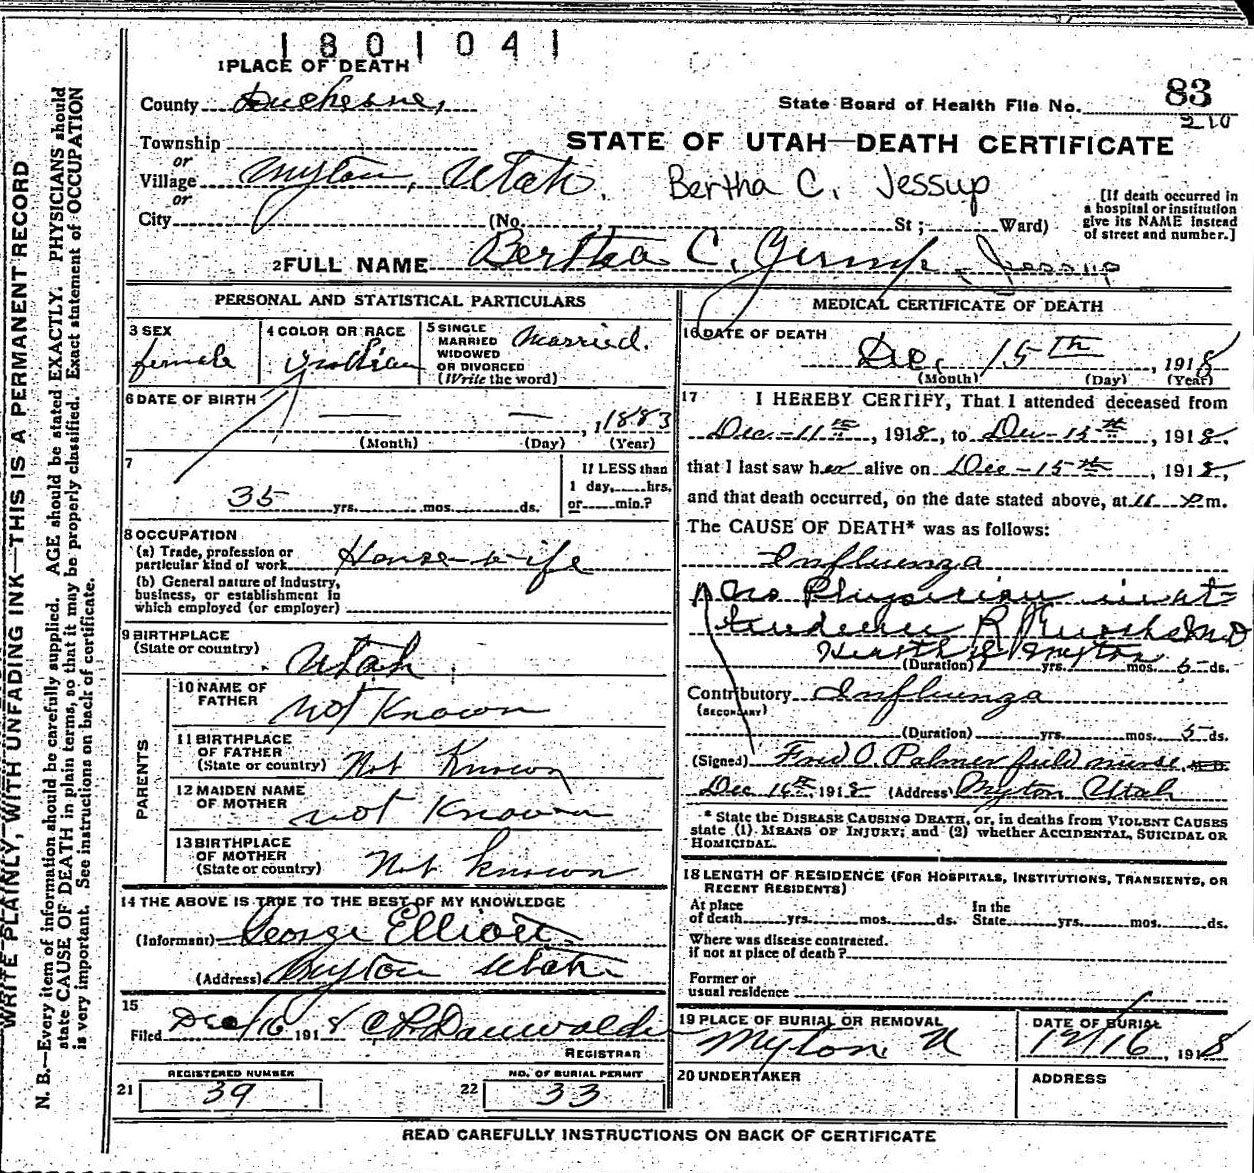 1801041
1 PLACE OF DEATH
County Duchesne,
State Board of Health File No. 83
210
Township
STATE OF UTAH—DEATH CERTIFICATE
or
Village Myton, Utah.
Bertha C. Jessup
or
City (No. St; Ward)
[If death occurred in
a hospital or institution
give its NAME instead
of street and number.]
2 FULL NAME Bertha C. Jessup Jessup
PERSONAL AND STATISTICAL PARTICULARS
3 SEX
female
4 COLOR OR RACE
Indian
5 SINGLE
MARRIED
WIDOWED
OR DIVORCED
(Write the word)
Married.
6 DATE OF BIRTH
— — , 1883
(Month) (Day) (Year)
7
35 yrs. mos. ds.
If LESS than
1 day, hrs.
or min.?
8 OCCUPATION
(a) Trade, profession or
particular kind of work House-wife
(b) General nature of industry,
business, or establishment in
which employed (or employer)
9 BIRTHPLACE
(State or country)
Utah
PARENTS
10 NAME OF
FATHER
not Known
11 BIRTHPLACE
OF FATHER
(State or country)
Not Known
12 MAIDEN NAME
OF MOTHER
not Known
13 BIRTHPLACE
OF MOTHER
(State or country)
Not known
14 THE ABOVE IS TRUE TO THE BEST OF MY KNOWLEDGE
(Informant) George Elliott
(Address) Myton Utah
15
Filed Dec 16 1918
REGISTRAR
21 REGISTERED NUMBER
39
22 NO. OF BURIAL PERMIT
33
MEDICAL CERTIFICATE OF DEATH
16 DATE OF DEATH
Dec, 15th, 1918
(Month) (Day) (Year)
17 I HEREBY CERTIFY, That I attended deceased from
Dec-11th, 1918, to Dec-15th, 1918,
that I last saw her alive on Dec-15th, 1918,
and that death occurred, on the date stated above, at 11 P m.
The CAUSE OF DEATH* was as follows:
Influenza
No Physician in at-
tendence R M.D
Myton
(Duration) yrs. mos. 5 ds.
Contributory Influenza
(SECONDARY)
(Duration) yrs. mos. 5 ds.
(Signed) Fred O. Palmer field nurse, M.D.
Dec 16th, 1918 (Address) Myton Utah
* State the DISEASE CAUSING DEATH, or, in deaths from VIOLENT CAUSES
state (1) MEANS OF INJURY; and (2) whether ACCIDENTAL, SUICIDAL OR
HOMICIDAL.
18 LENGTH OF RESIDENCE (FOR HOSPITALS, INSTITUTIONS, TRANSIENTS, OR
RECENT RESIDENTS)
At place In the
of death yrs. mos. ds. State yrs. mos. ds.
Where was disease contracted.
if not at place of death?
Former or
usual residence
19 PLACE OF BURIAL OR REMOVAL
Myton, U
DATE OF BURIAL
12/16, 1918
20 UNDERTAKER
ADDRESS
READ CAREFULLY INSTRUCTIONS ON BACK OF CERTIFICATE
WRITE PLAINLY, WITH UNFADING INK—THIS IS A PERMANENT RECORD
N. B.—Every item of information should be carefully supplied. AGE should be stated EXACTLY. PHYSICIANS should
state CAUSE OF DEATH in plain terms, so that it may be properly classified. Exact statement of OCCUPATION
is very important. See instructions on back of certificate.